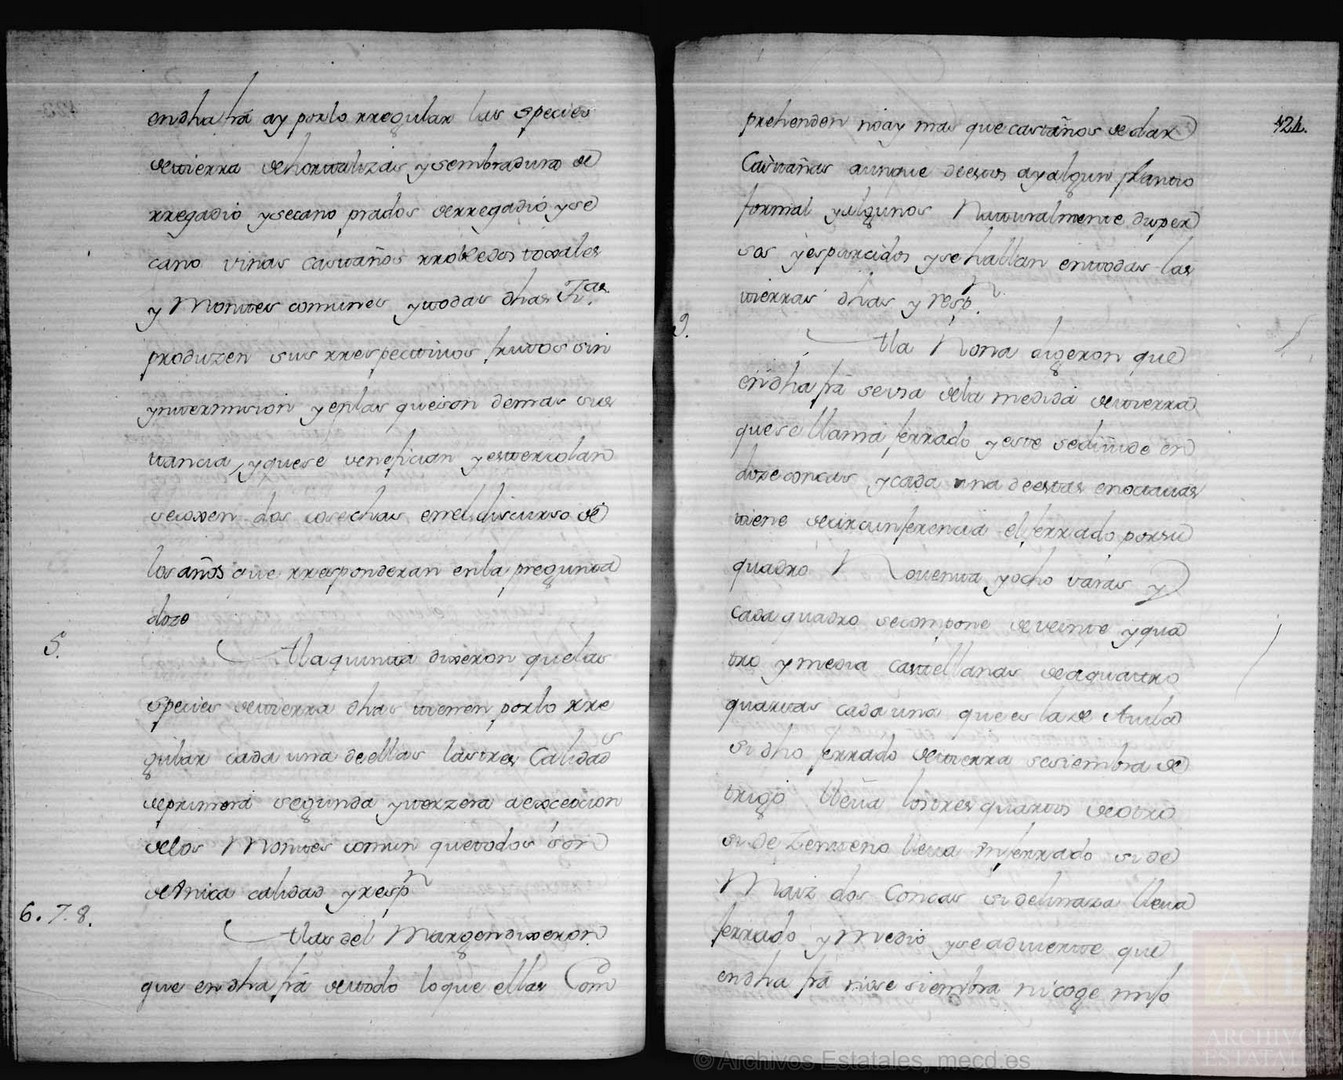 endha frã ay porlo rregular las especies
detierra dehortalizas ysembradura de
rregadio ysecano prados derregadio yse
cano viñas castaños rrobledos toxales
y Montes comunes ytodas dhas Trãs
produzen sus rrespectivos frutos sin
yntermision yenlas queson demas sus
tancia, yquese venefician yestercolan
secoxen dos cosechas enel discurso de
los años que rresponderan enla pregunta
doze
5. Ala quinta dixeron quelas
especies detierra dhas tienen porlo rre
gular cada una deellas lastres Calidads
deprimera segunda yterzera aexcecion
delos Montes comun quetodos son
deUnica calidad yresp.n
6. 7. 8. Alas del Margen dixeron
que endha frã detodo loque ellas Com
124.
prehenden noay mas que castaños sedar
Castañas aunque deestos ayalgun plantio
formal yalgunos Naturalmente disper
sos yesparcidos ysehallan entodas las
tierras dhas y resp.n
9. Ala Nona digeron que
endha frã seusa dela medida detierra
quese llama ferrado yeste sedivide en
doze concas ycada una deestas enoctavas
tiene decircunferencia elferrado porsu
quadro Noventa yocho varas y
cada quadro secompone deveinte yqua
tro ymedia castellanas deaquatro
quartas cada una que es lade Avila
si dho ferrado detierra sesiembra de
trigo lleva lostres quartos deotro
si de Zenteno lleva un ferrado si de
Maiz dos Concas si delinaza lleva
ferrado y Medio yseadvierte que
endha frã nose siembra nicoge mijo
© Archivos Estatales, mecd.es
ARCHIVOS
ESTATALES